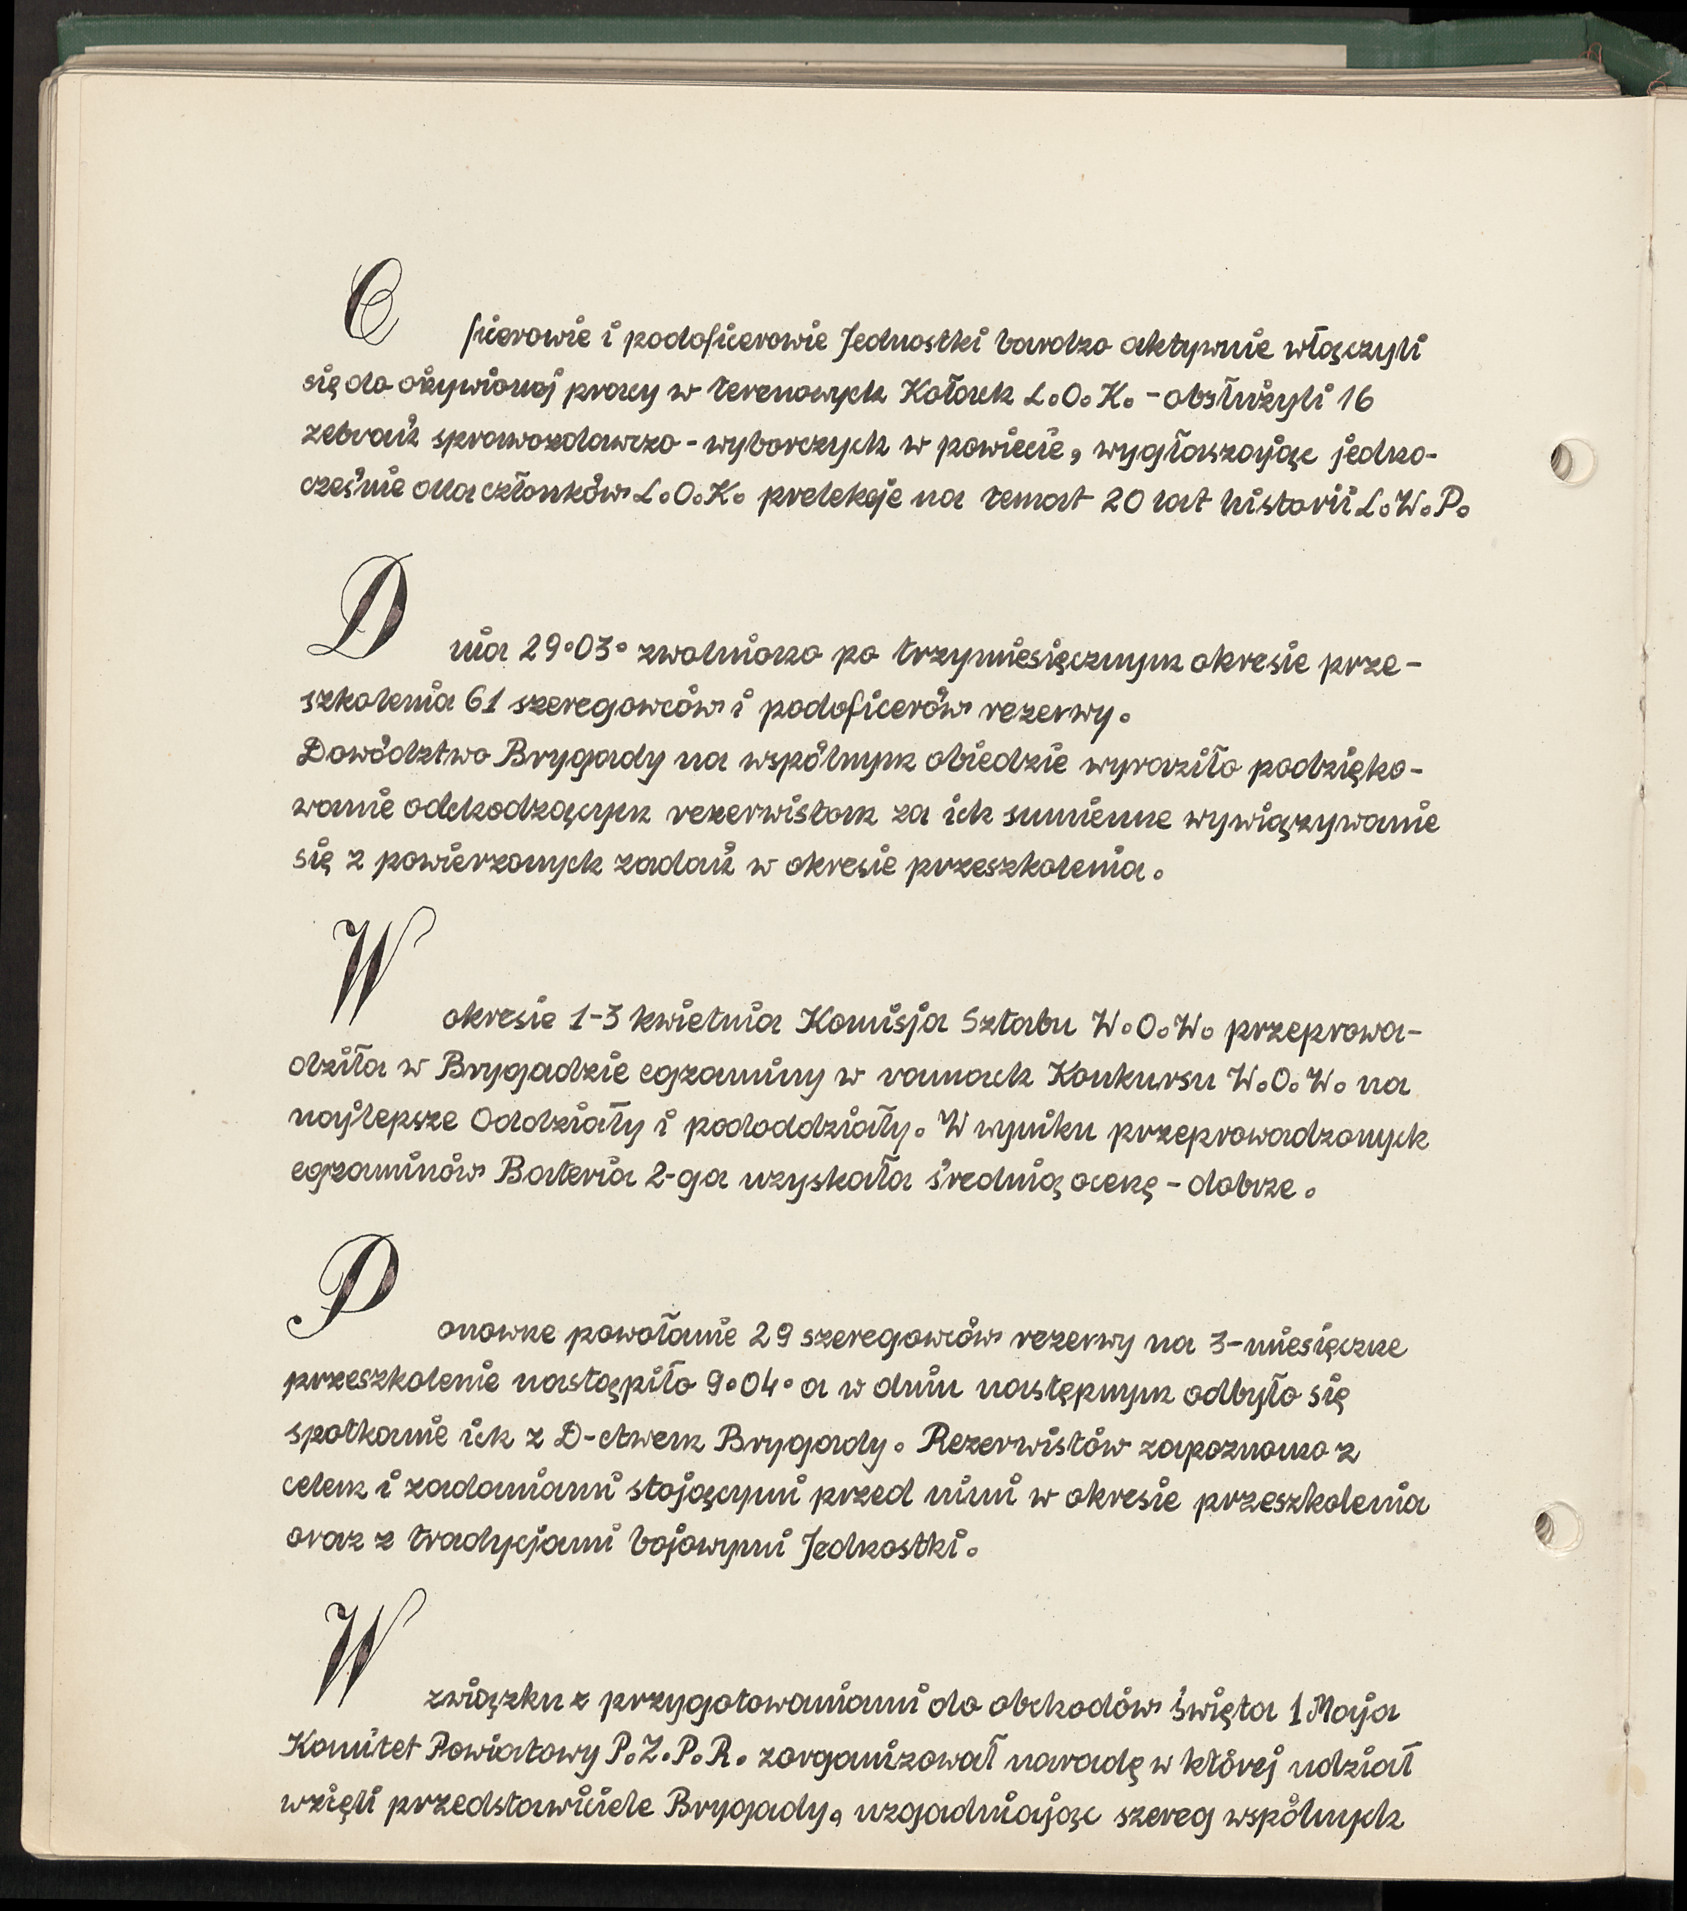 Oficerowie i podoficerowie Jednostki bardzo aktywnie włączyli
się do ożywionej pracy w terenowych Kołach L.O.K. - obsłużyli 16
zebrań sprawozdawczo - wyborczych w powiecie, wygłaszając jedno-
cześnie dla członków L.O.K. prelekcje na temat 20 lat historii L.W.P.
Dnia 29.03. zwolniono po trzymiesięcznym okresie prze-
szkolenia 61 szeregowców i podoficerów rezerwy.
Dowództwo Brygady na wspólnym obiedzie wyraziło podzięko-
wanie odchodzącym rezerwistom za ich sumienne wywiązywanie
się z powierzonych zadań w okresie przeszkolenia.
W okresie 1-3 kwietnia Komisja Sztabu W.O.W. przeprowa-
dziła w Brygadzie egzaminy w ramach Konkursu W.O.W. na
najlepsze Oddziały i pododdziały. W wyniku przeprowadzonych
egzaminów Bateria 2-ga uzyskała średnią ocenę - dobrze.
Ponowne powołanie 29 szeregowców rezerwy na 3-miesięczne
przeszkolenie nastąpiło 9.04. a w dniu następnym odbyło się
spotkanie ich z D-ctwem Brygady. Rezerwistów zapoznano z
celem i zadaniami stojącymi przed nimi w okresie przeszkolenia
oraz z tradycjami bojowymi Jednostki.
W związku z przygotowaniami do obchodów święta 1 Maja
Komitet Powiatowy P.Z.P.R. zorganizował naradę w której udział
wzięli przedstawiciele Brygady, uzgadniając szereg wspólnych